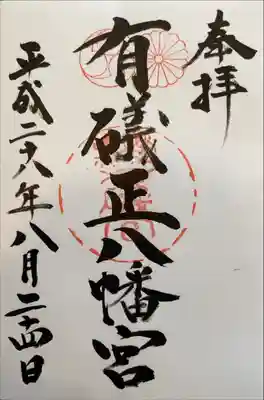 奉拝
有礒正八幡宮
平成二十八年八月二十四日